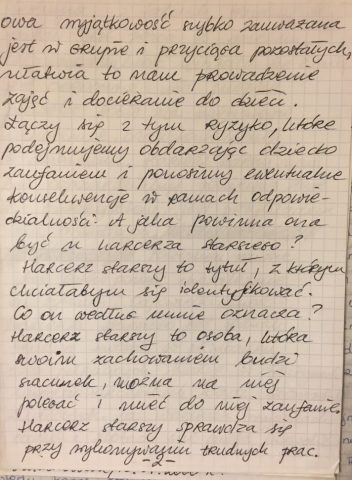 owa wyjątkowość szybko zauważana
jest w grupie i przyciąga pozostałych,
ułatwia to nam prowadzenie
zajęć i docieranie do dzieci.
Łączy się z tym ryzyko, które
podejmujemy obdarzając dziecko
zaufaniem i ponosimy ewentualne
konsekwencje w ramach odpowie-
dzialności. A jaka powinna ona
być u harcerza starszego?
Harcerz starszy to tytuł, z którym
chciałabym się identyfikować.
Co on według mnie oznacza?
Harcerz starszy to osoba, która
swoim zachowaniem budzi
szacunek, można na niej
polegać i mieć do niej zaufanie.
Harcerz starszy sprawdza się
przy wykonywaniu trudnych prac.
-2-